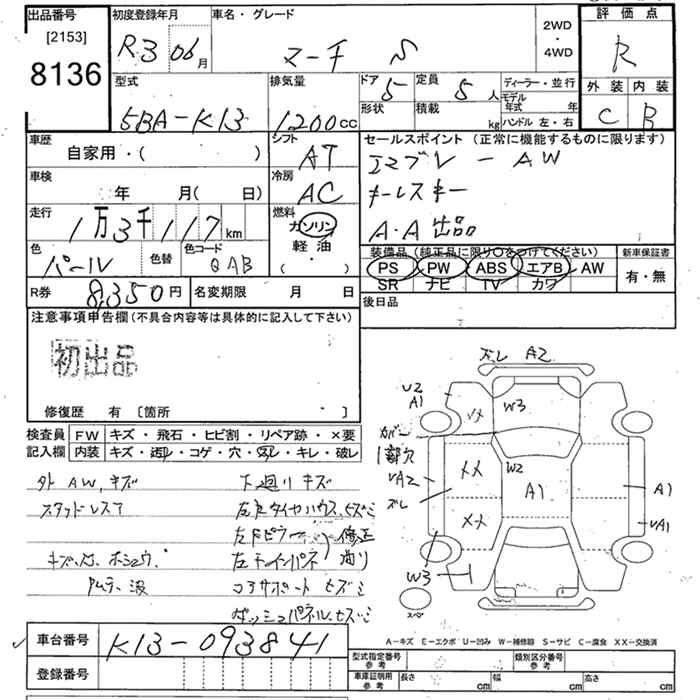 出品番号
[2153]
8136
初度登録年月
R3 06月
車名・グレード
マーチ S
2WD
・
4WD
評価点
R
外装 内装
C B
型式
5BA-K13
排気量
1200cc
ドア 5
定員 5人
形状
積載 kg
ディーラー・並行
モデル年式 年
ハンドル 左・右
車歴
自家用・( )
シフト
AT
セールスポイント (正常に機能するものに限ります)
エマブレ - AW
キーレスキー
A.A出品
車検
年 月( 日)
冷房
AC
走行
1万3千117km
燃料
ガソリン
軽油
( ・ )
色
パール
色替
色コード
QAB
装備品 (純正品に限り○をつけてください)
PS PW ABS エアB AW
SR ナビ TV カワ
新車保証書
有・無
R券 8,350円
名変期限 月 日
後日品
注意事項申告欄(不具合内容等は具体的に記入して下さい)
初出品
修復歴 有 [箇所 ]
検査員
記入欄
FW キズ・飛石・ヒビ割・リペア跡・×要
内装 キズ・汚れ・コゲ・穴・スレ・キレ・破レ
外 AW,キズ
スタッドレス
下廻りキズ
コアサポートヒズミ
ダッシュパネルヒズミ
修正
有り
ズレ A2
U2
A1
W3
カバー
1部欠
ズレ
XX
W2
A1
XX
A1
W3
スペ
A-キズ E-エクボ U-凹み W-補修跡 S-サビ C-腐食 XX-交換済
車台番号
K13-093841
登録番号
型式指定番号
参考
類別区分番号
参考
車庫証明用
参考
長さ cm
幅 cm
高さ cm